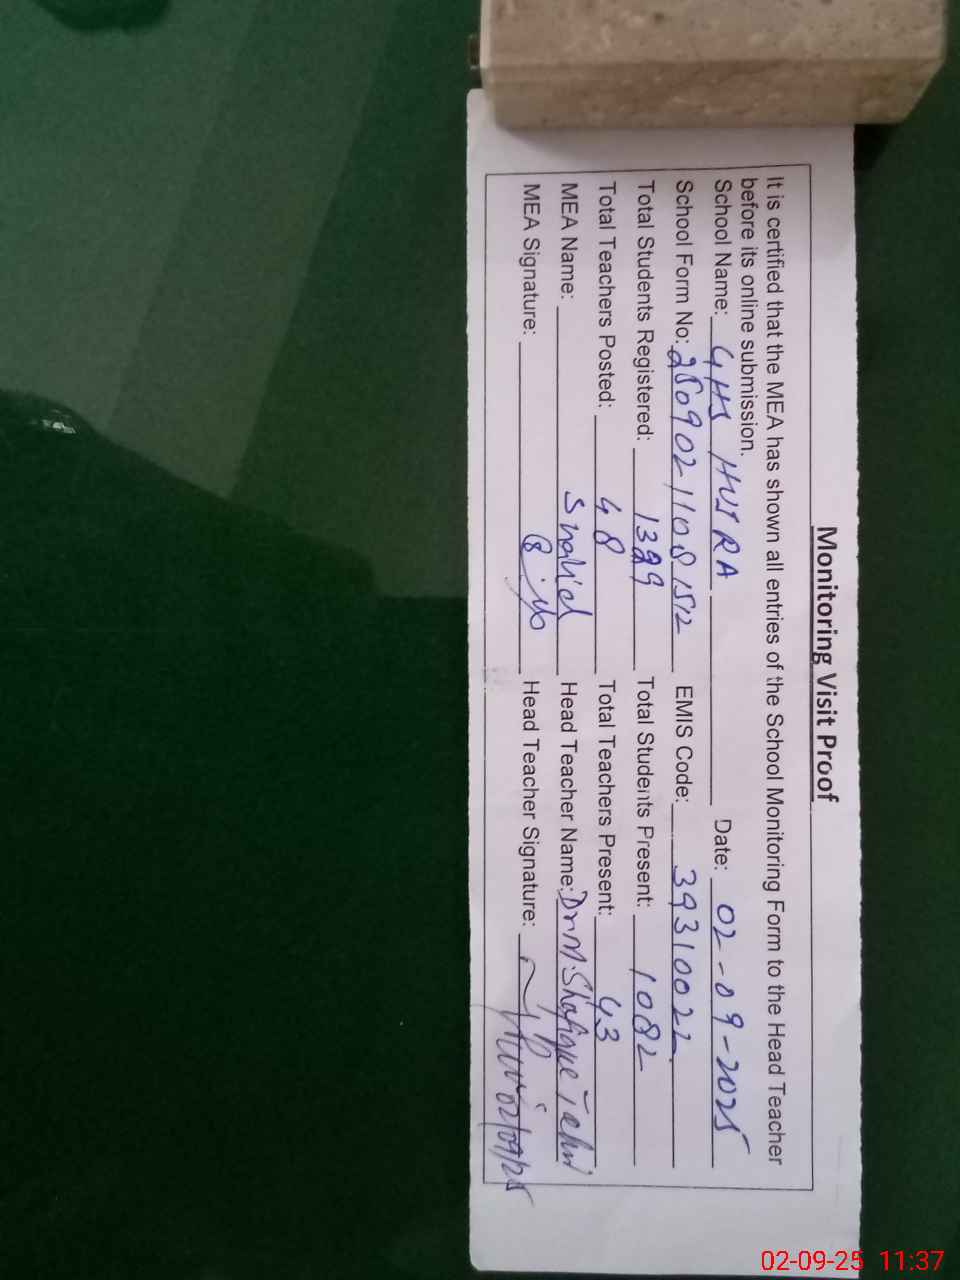 Monitoring Visit Proof
It is certified that the MEA has shown all entries of the School Monitoring Form to the Head Teacher
before its online submission.
School Name: GHS HUJRA Date: 02-09-2025
School Form No: 25090211081512 EMIS Code: 39310022
Total Students Registered: 1329 Total Students Present: 1082
Total Teachers Posted: 48 Total Teachers Present: 43
MEA Name: Shahid Head Teacher Name: Dr M. Shafique Tahir
MEA Signature: Head Teacher Signature: 02/09/25
02-09-25 11:37